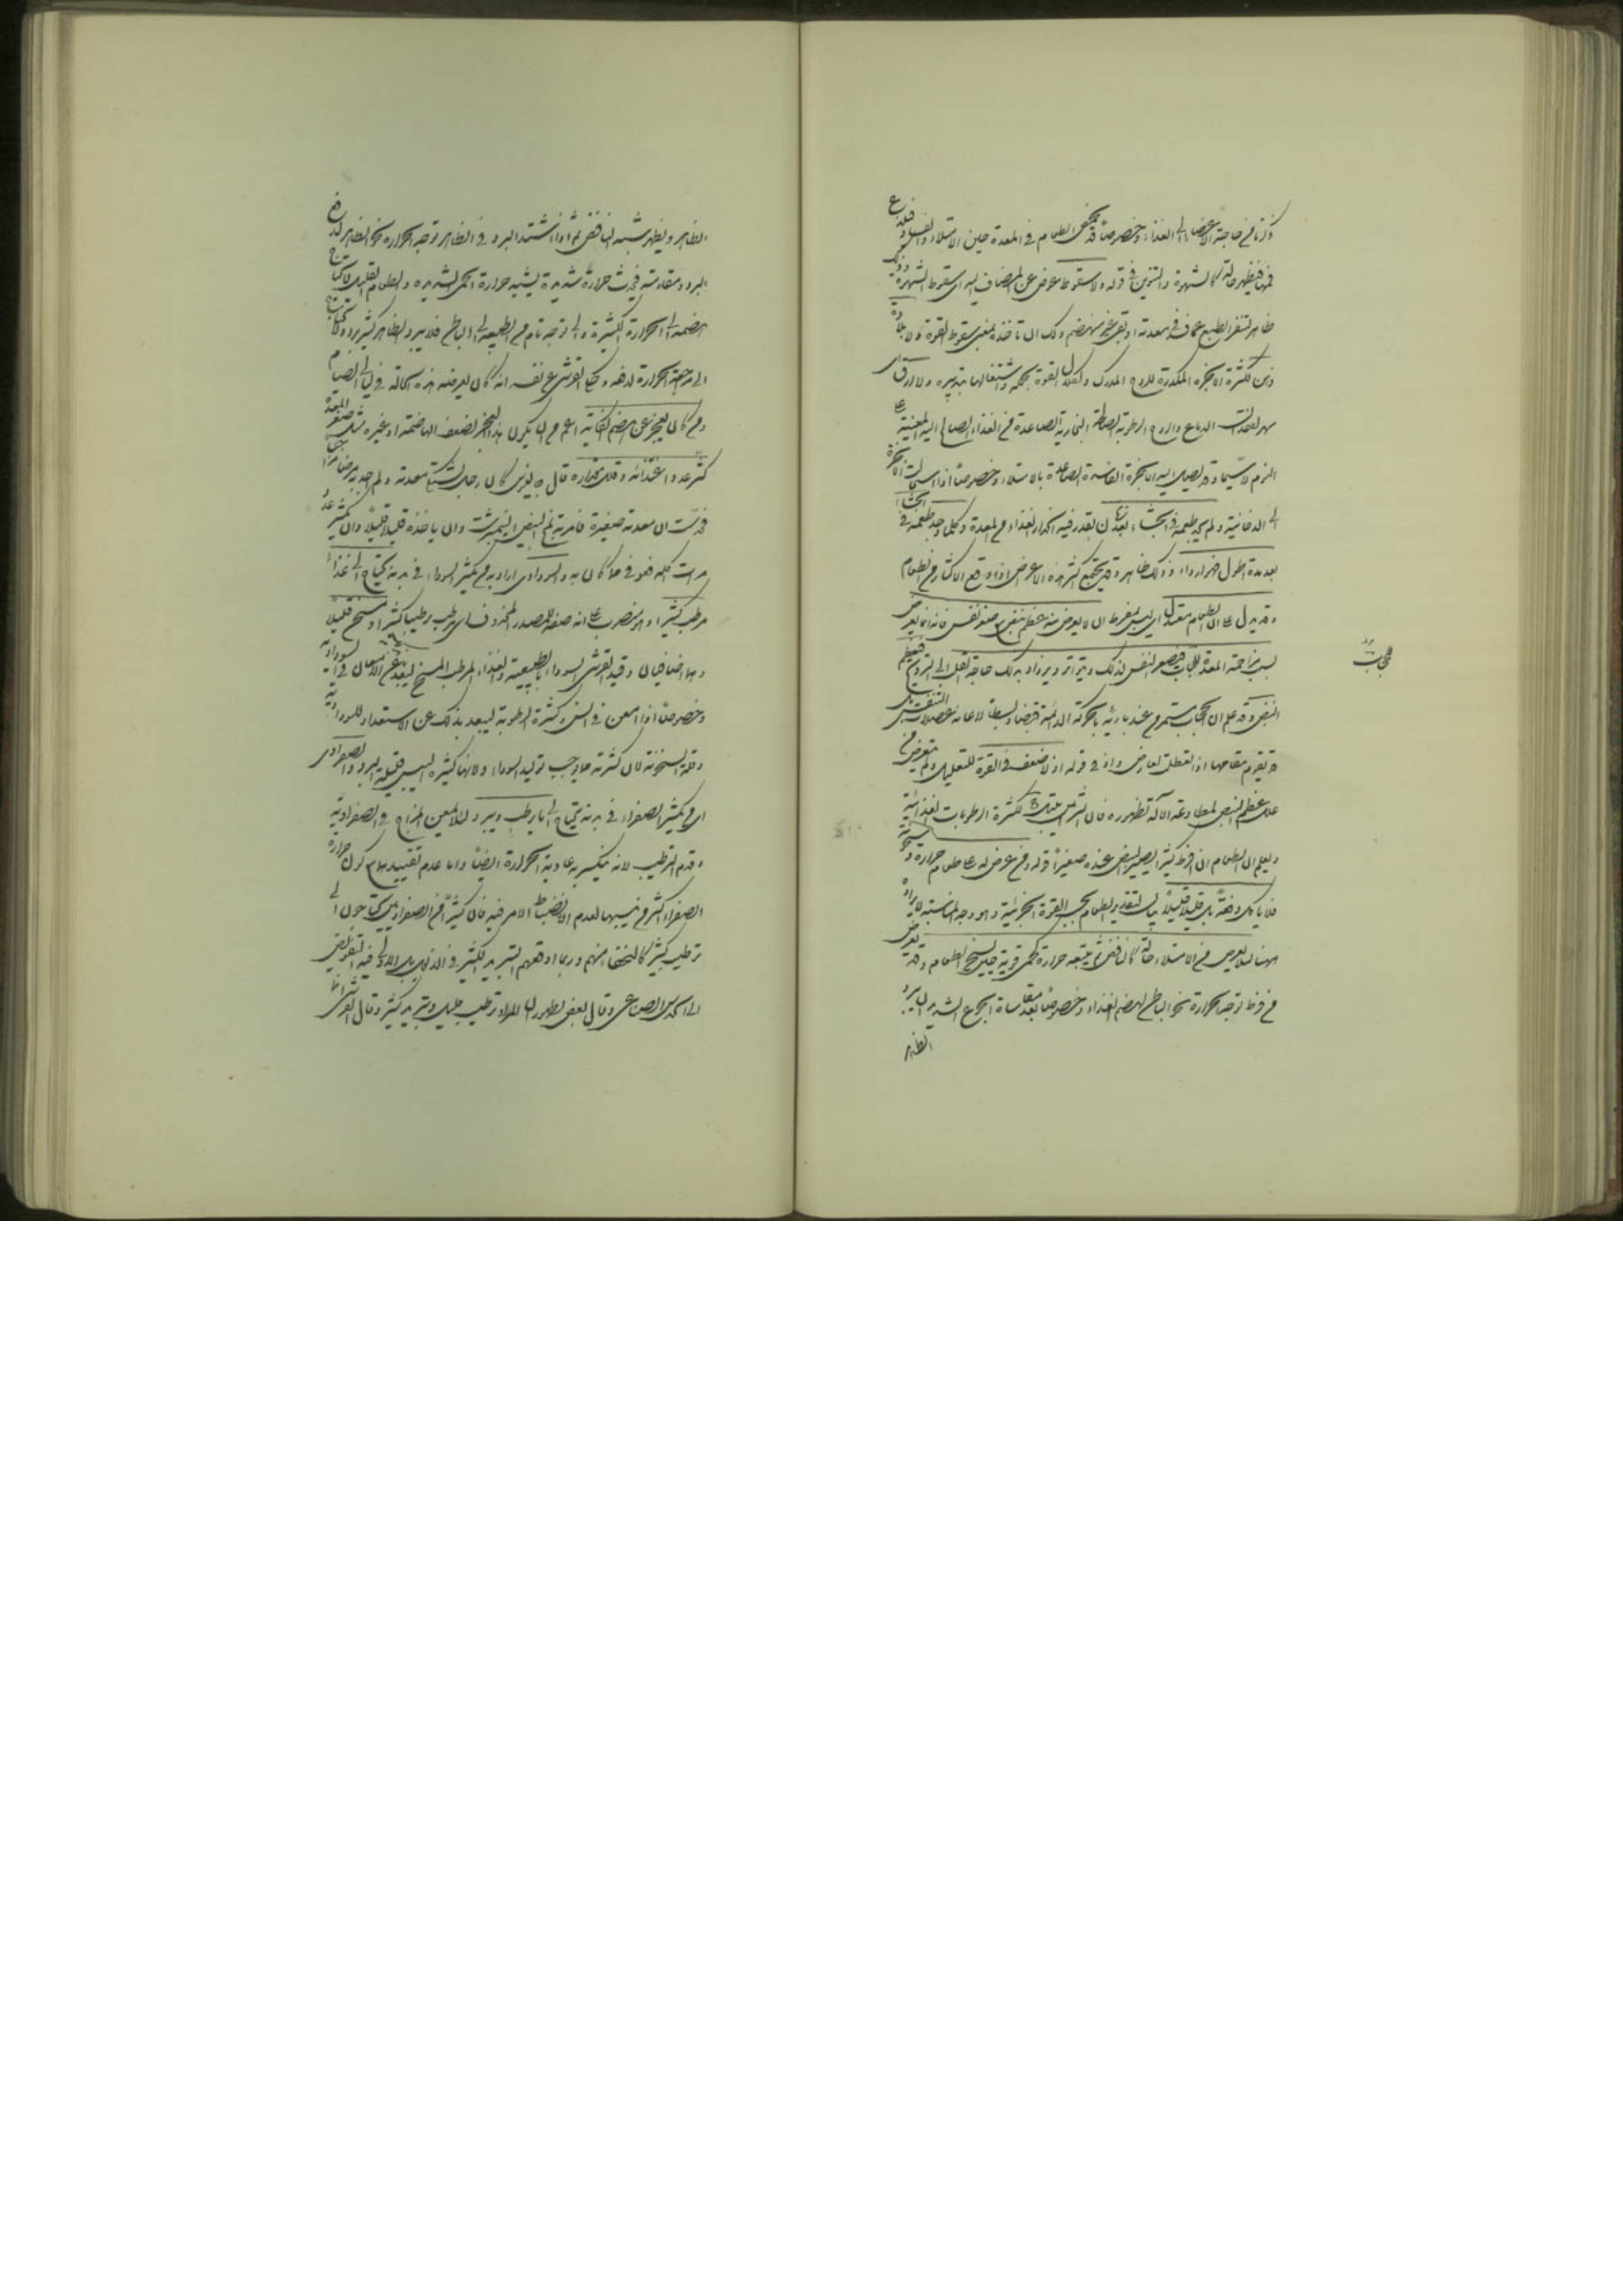 ذكرنا من حاجة الاعضاء الى الغذاء وخصوصا الطعام في المعدة حين الامتلاء
فيها فيظهر حالة كالشهوة والتنوين في قوله ولا سقوط عوض عن المضاف اليه اى سقوط الشهوة
ظاهر لتنفر الطبع عما في معدته او بقى غير منهضم ولك ان تأخذه بمعنى سقوط القوة ولا بلادة
ذهن لكثرة الابخرة المكدرة للروح المدرك القوة واشتغالها بتدبيره ولا ارق اى
سهر الدماغ والروح الرطوبة البخارية الصاعدة من الغذاء الصالح اليه المعينة على
النوم لا سيما وقد يصل اليه الابخرة الفاسدة الصاعدة بالامتلاء وخصوصا اذا استحالت الابخرة
الى الدخانية ولم يجد طعمه في الجشاء بعد زمان يقدر فيه انحدار الغذاء من المعدة وكلما وجد طعمه في الجشاء
بعد مدة اطول فهو اردأ وذلك ظاهر وقد يجتمع اكثر هذه الاعراض اذا وقع الاكثار من الطعام
وقد يدل على ان الطعام معتدل اى ليس بمفرط ان لا يعرض منه عظم نبض وصغر نفس فانه انما يعرض
بسبب مزاحمة المعدة للحجاب فيصغر النفس لذلك ويتواتر ويزداد بذلك حاجة القلب الى الترويح فيعظم
النبض وقد علم ان الحجاب يستمر عند بارئه بالحركة الدائمة قبضا وبسطا لاعانة عضلات التنفس
او تقوم مقامها اذا لعارض واذ في قوله اذ لا ضعف في القوة للتعليل ولم يتعرض
على عظم النبض لمطاوعة الآلة لظهوره فان الشرايين لكثرة الرطوبات الغذائية
وليعلم ان الطعام ان افرط كثيرا يصير النبض عنده صغيرا قوله ومن عرض له على طعام حرارة وسخونة
فلا يأكل دفعة بل قليلا قليلا بيان لتقدير الطعام بحسب القوة الجزئية وهو وجه المناسبة لايراده
ههنا لئلا يعرض من الامتلاء حالة كالنافض ثم يتبعه حرارة كحمى قوية حين يسخن الطعام وقد يعرض
من فرط توجه الحرارة نحو الباطن لهضم الغذاء وخصوصا بعد مقاساة الجوع الشديد ان يبرد
الظاهر
الحجاب
الظاهر ويظهر شبه النافض ثم اذا اشتد البرد في الظاهر توجه الحرارة نحو الظاهر لدفع
البرد ومقاومته فيحدث حرارة شديدة يشبه حرارة الحمى الشديدة والطعام القليل لا يحتاج
هضمه الى الحرارة الكثيرة والى توجه تام من الطبيعة الى الباطن فلا يبرد الظاهر كثير برد ولا يحتاج
الى مراجعة الحرارة لدفعه وحكى القرشى عن نفسه انه كان يعرضه هذه الحالة في ليالى الصيام
ومن كان يعجز عن هضم الكفاية اعم من ان يكون هذا العجز لضعف الهاضمة او غيره مثل صغر المعدة
كثر عدد اغتذائه وقلل مقداره قال جالينوس كان رجل يشتكى معدته ولم يجد بها مرضا
فحدست ان معدته صغيرة فامرته بنم البيض النيمبرشت وان يأخذه قليلا قليلا وان يكثر عدد
مرات اكله فعوفى مما كان به والسوداوى اراد به من يكثر السوداء في بدنه يحتاج الى غذاء
مرطب كثيرا وهو منصوب على انه صفة للمصدر المحذوف اى مرطب ترطيبا كثيرا ومسخن قليلا
وهما اضافيان وقيد القرشى السوداء بالطبيعية والغذاء المرطب المسخن
وخصوصا اذا امعن في السخونة وكثرة الرطوبة ليبعد بذلك عن الاستعداد للسوداوية
وقلة السخونة لان كثرته مما يوجب توليد السوداء ولانها كثيرة اليبس قليلة البرد والصفراوى
اى من يكثر الصفراء في بدنه يحتاج الى ما يرطب ويبرد المزاج في الصفراوية
وقدم الترطيب لانه ينكسر به عادية الحرارة ايضا واما عدم تقييدهما
الصفراء اكثر من يبسها لعدم انضباط الامر فيه فان كثيرا من الصفراويين يحتاجون الى
ترطيب كثير كالنحفاء منهم وربما اوقعهم التبريد الكثير في الذبول بل الاولى فيه التفويض
الى الحدس الصناعى وقال بعض المراد ترطيب قليل وتبريد كثير وقال القرشى